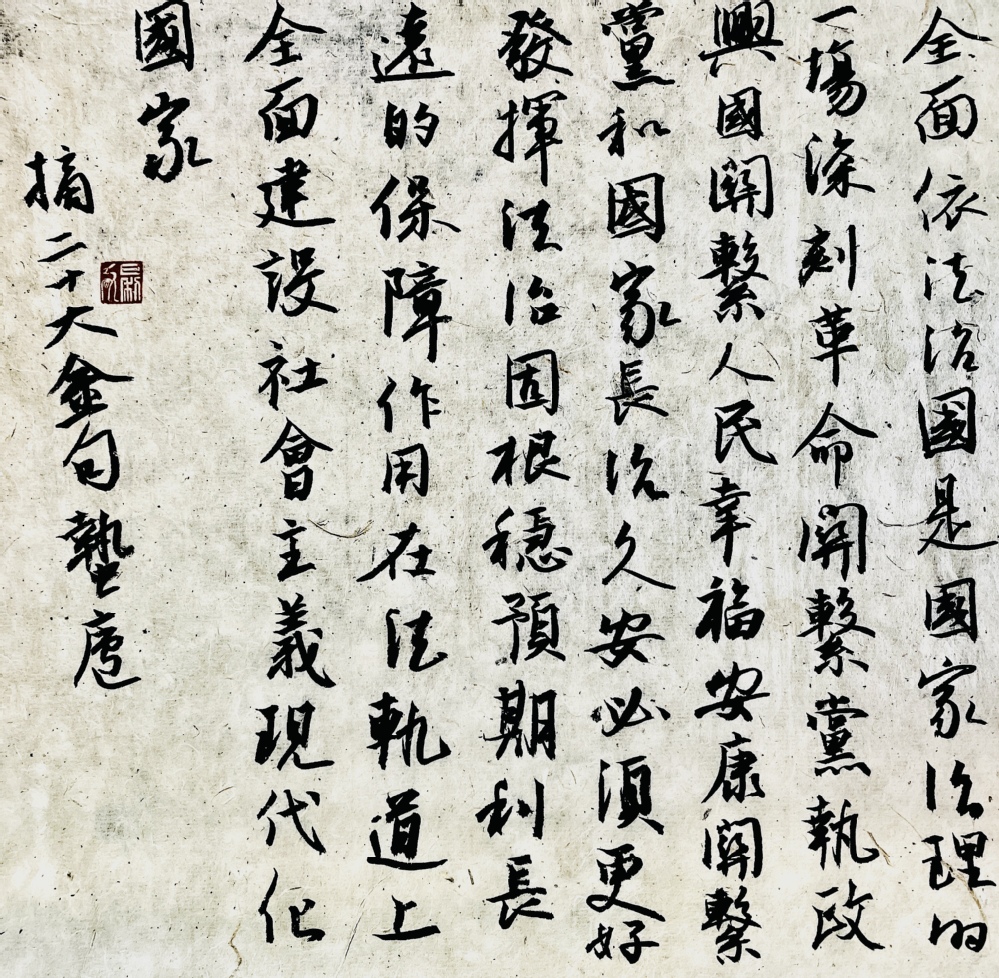 全面依法治國是國家治理的
一場深刻革命關繫黨執政
興國關繫人民幸福安康關繫
黨和國家長治久安必須更好
發揮法治固根穩預期利長
遠的保障作用在法軌道上
全面建設社會主義現代化
國家
摘二十大金句蟄廬